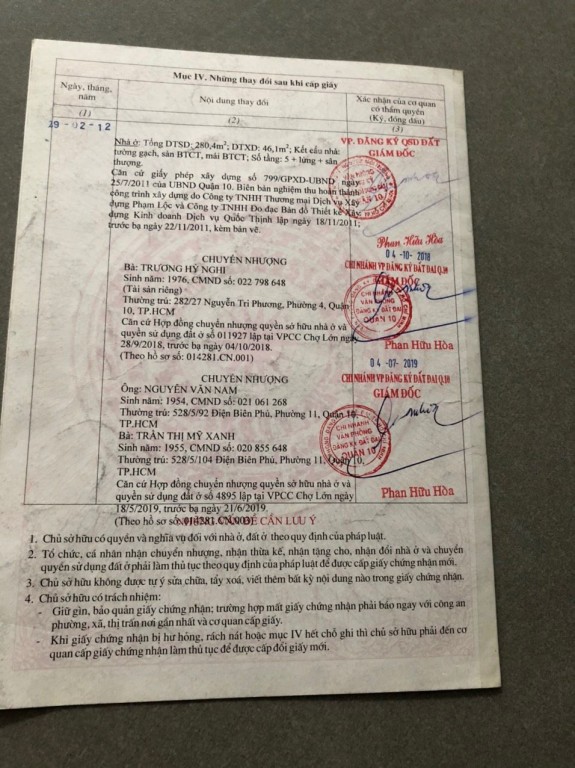 Mục IV. Những thay đổi sau khi cấp giấy
Ngày, tháng, năm
(1)
Nội dung thay đổi
(2)
Xác nhận của cơ quan có thẩm quyền (Ký, đóng dấu)
(3)
29-02-12
Nhà ở: Tổng DTSD: 280,4m²; DTXD: 46,1m²; Kết cấu nhà:
tường gạch, sàn BTCT, mái BTCT; Số tầng: 5 + lửng + sân
thượng.
Căn cứ giấy phép xây dựng số 799/GPXD-UBND ngày
25/7/2011 của UBND Quận 10. Biên bản nghiệm thu hoàn thành
công trình xây dựng do Công ty TNHH Thương mại Dịch vụ Xây
dựng Phạm Lộc và Công ty TNHH Đo đạc Bản đồ Thiết kế Xây
dựng Kinh doanh Dịch vụ Quốc Thịnh lập ngày 18/11/2011;
trước bạ ngày 22/11/2011, kèm bản vẽ.
VP. ĐĂNG KÝ QSD ĐẤT
GIÁM ĐỐC
Phan Hữu Hòa
CHUYỂN NHƯỢNG
Bà: TRƯƠNG HỶ NGHI
Sinh năm: 1976, CMND số: 022 798 648
(Tài sản riêng)
Thường trú: 282/27 Nguyễn Tri Phương, Phường 4, Quận
10, TP.HCM
Căn cứ Hợp đồng chuyển nhượng quyền sở hữu nhà ở và
quyền sử dụng đất ở số 011927 lập tại VPCC Chợ Lớn ngày
28/9/2018, trước bạ ngày 04/10/2018.
(Theo hồ sơ số: 014281.CN.001)
04-10-2018
CHI NHÁNH VP ĐĂNG KÝ ĐẤT ĐAI Q.10
GIÁM ĐỐC
CHI NHÁNH
VĂN PHÒNG
ĐĂNG KÝ ĐẤT ĐAI
QUẬN 10
Phan Hữu Hòa
CHUYỂN NHƯỢNG
Ông: NGUYỄN VĂN NAM
Sinh năm: 1954, CMND số: 021 061 268
Thường trú: 528/5/92 Điện Biên Phủ, Phường 11, Quận 10,
TP.HCM
Bà: TRẦN THỊ MỸ XANH
Sinh năm: 1955, CMND số: 020 855 648
Thường trú: 528/5/104 Điện Biên Phủ, Phường 11, Quận 10,
TP.HCM
Căn cứ Hợp đồng chuyển nhượng quyền sở hữu nhà ở và
quyền sử dụng đất ở số 4895 lập tại VPCC Chợ Lớn ngày
18/5/2019, trước bạ ngày 21/6/2019.
(Theo hồ sơ số: 014281.CN.003)
04-07-2019
CHI NHÁNH VP ĐĂNG KÝ ĐẤT ĐAI Q.10
GIÁM ĐỐC
CHI NHÁNH
VĂN PHÒNG
ĐĂNG KÝ ĐẤT ĐAI
QUẬN 10
Phan Hữu Hòa
ĐỀ CẦN LƯU Ý
1. Chủ sở hữu có quyền và nghĩa vụ đối với nhà ở, đất ở theo quy định của pháp luật.
2. Tổ chức, cá nhân nhận chuyển nhượng, nhận thừa kế, nhận tặng cho, nhận đổi nhà ở và chuyển
quyền sử dụng đất ở phải làm thủ tục theo quy định của pháp luật để được cấp giấy chứng nhận mới.
3. Chủ sở hữu không được tự ý sửa chữa, tẩy xoá, viết thêm bất kỳ nội dung nào trong giấy chứng nhận.
4. Chủ sở hữu có trách nhiệm:
- Giữ gìn, bảo quản giấy chứng nhận; trường hợp mất giấy chứng nhận phải báo ngay với công an
phường, xã, thị trấn nơi gần nhất và cơ quan cấp giấy.
- Khi giấy chứng nhận bị hư hỏng, rách nát hoặc mục IV hết chỗ ghi thì chủ sở hữu phải đến cơ
quan cấp giấy chứng nhận làm thủ tục để được cấp đổi giấy mới.